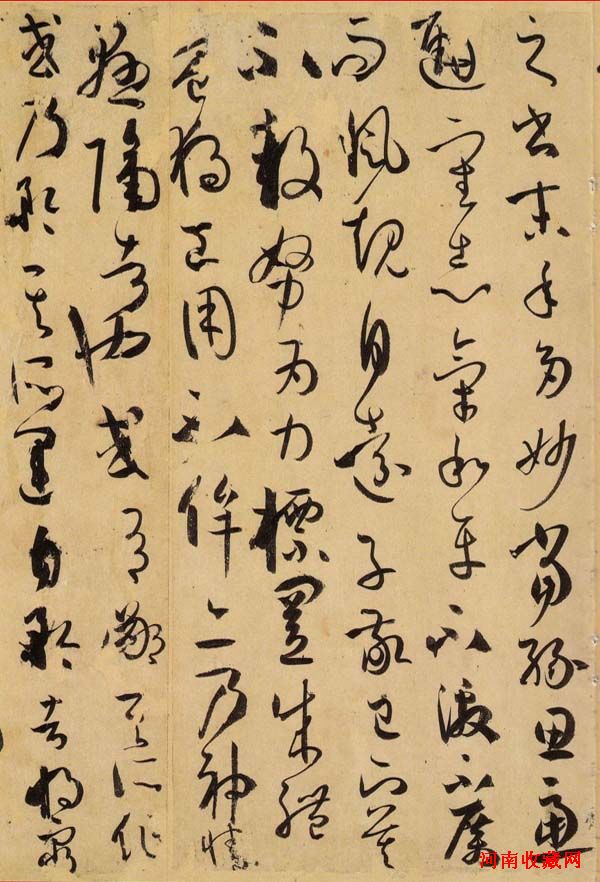 之書末年多妙當緣思慮
通審志氣和平不激不厲
而風規自遠子敬已下莫
不鼓努為力標置成體
豈獨工用不侔亦乃神情
懸隔者也或有鄙其所作
或乃矜其所運自矜者將窮
河南收藏网